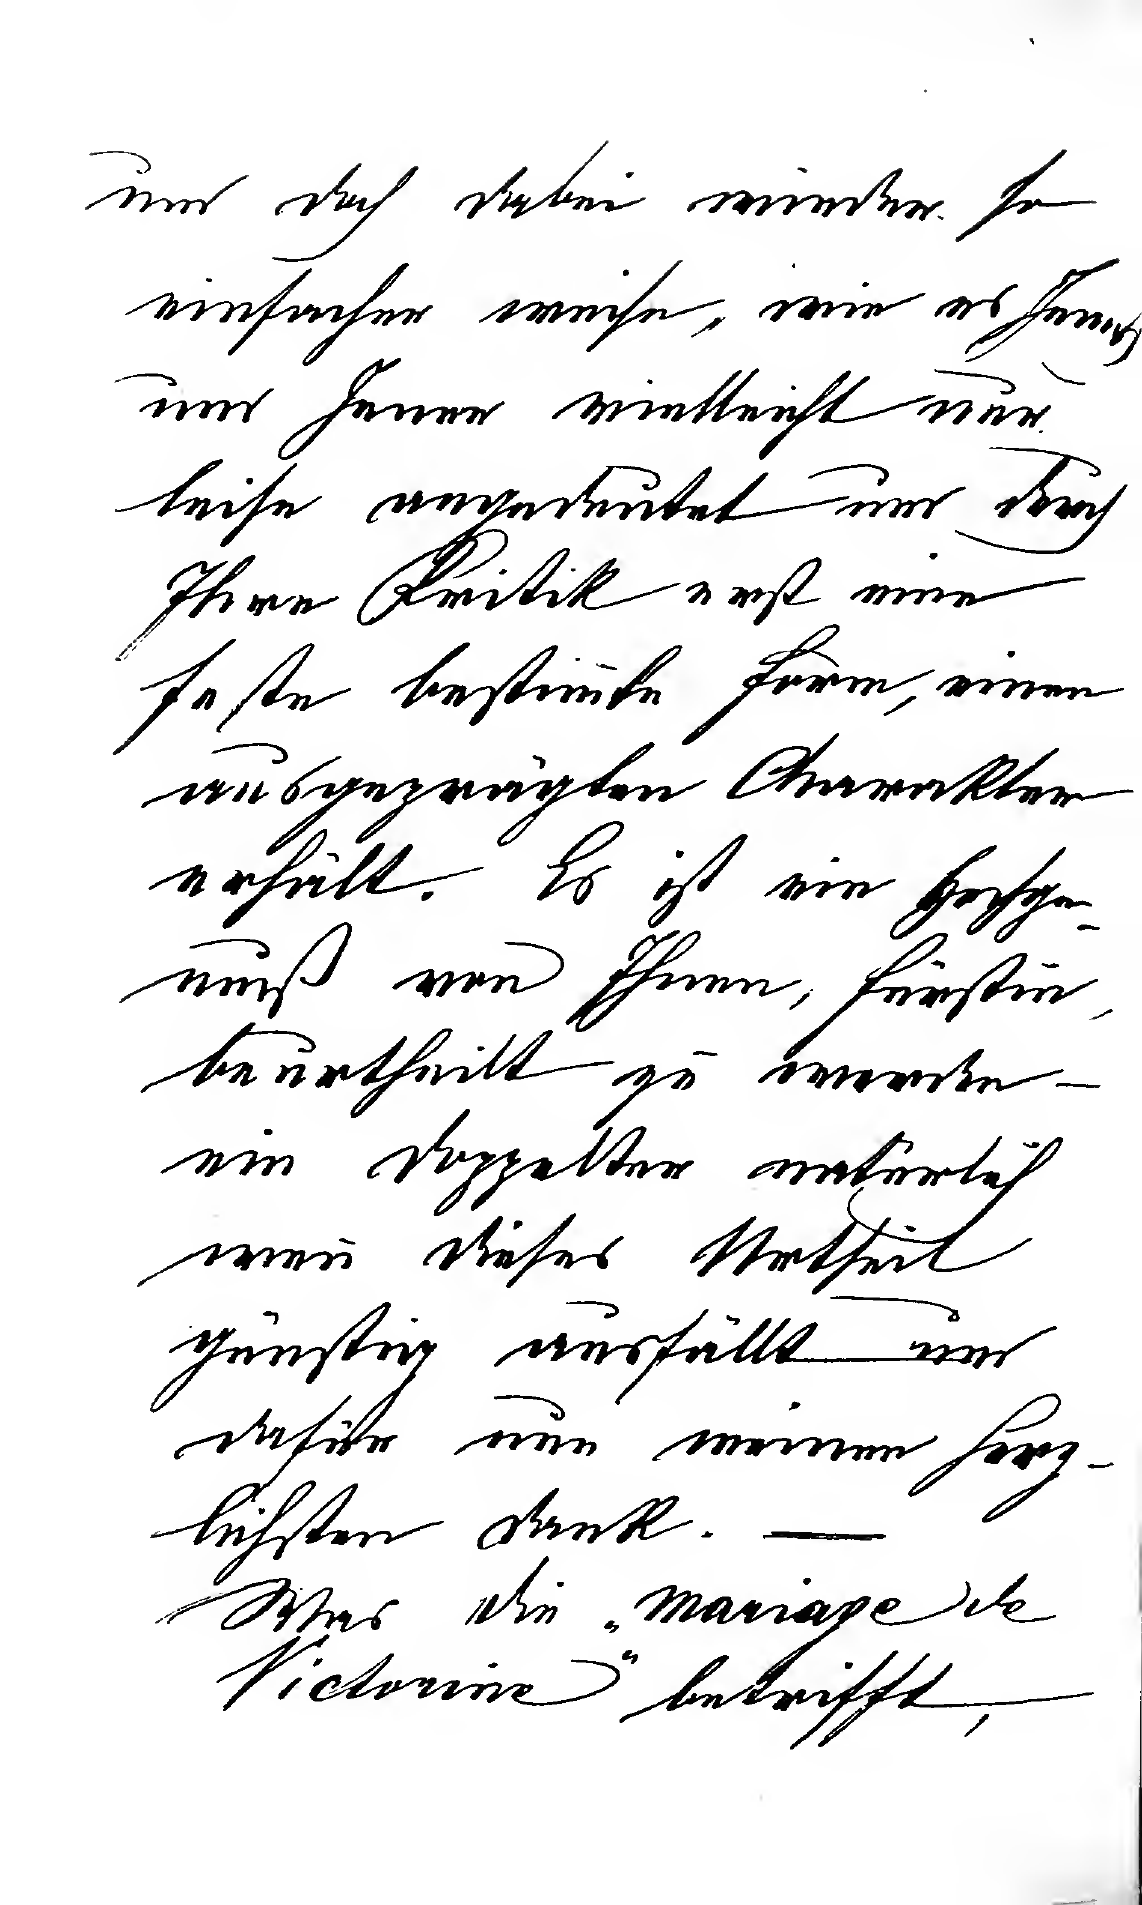 und doch dabei wieder so
einfacher weise, wie es Jenes
und Jener vielleicht nur
leise angedeutet und durch
Ihre Kritik erst eine
feste bestim̄te Form, einen
ausgeprägten Charakter
erhält. Es ist ein Hochge-
nuß von Ihnen, Fürstin,
beurtheilt zu werden –
ein doppelter natürlich
wen̄ dieses Urtheil
günstig ausfällt und
dafür nun meinen herz-
lichsten Dank. —
Was die „Mariage de
Victorine“ betrifft,